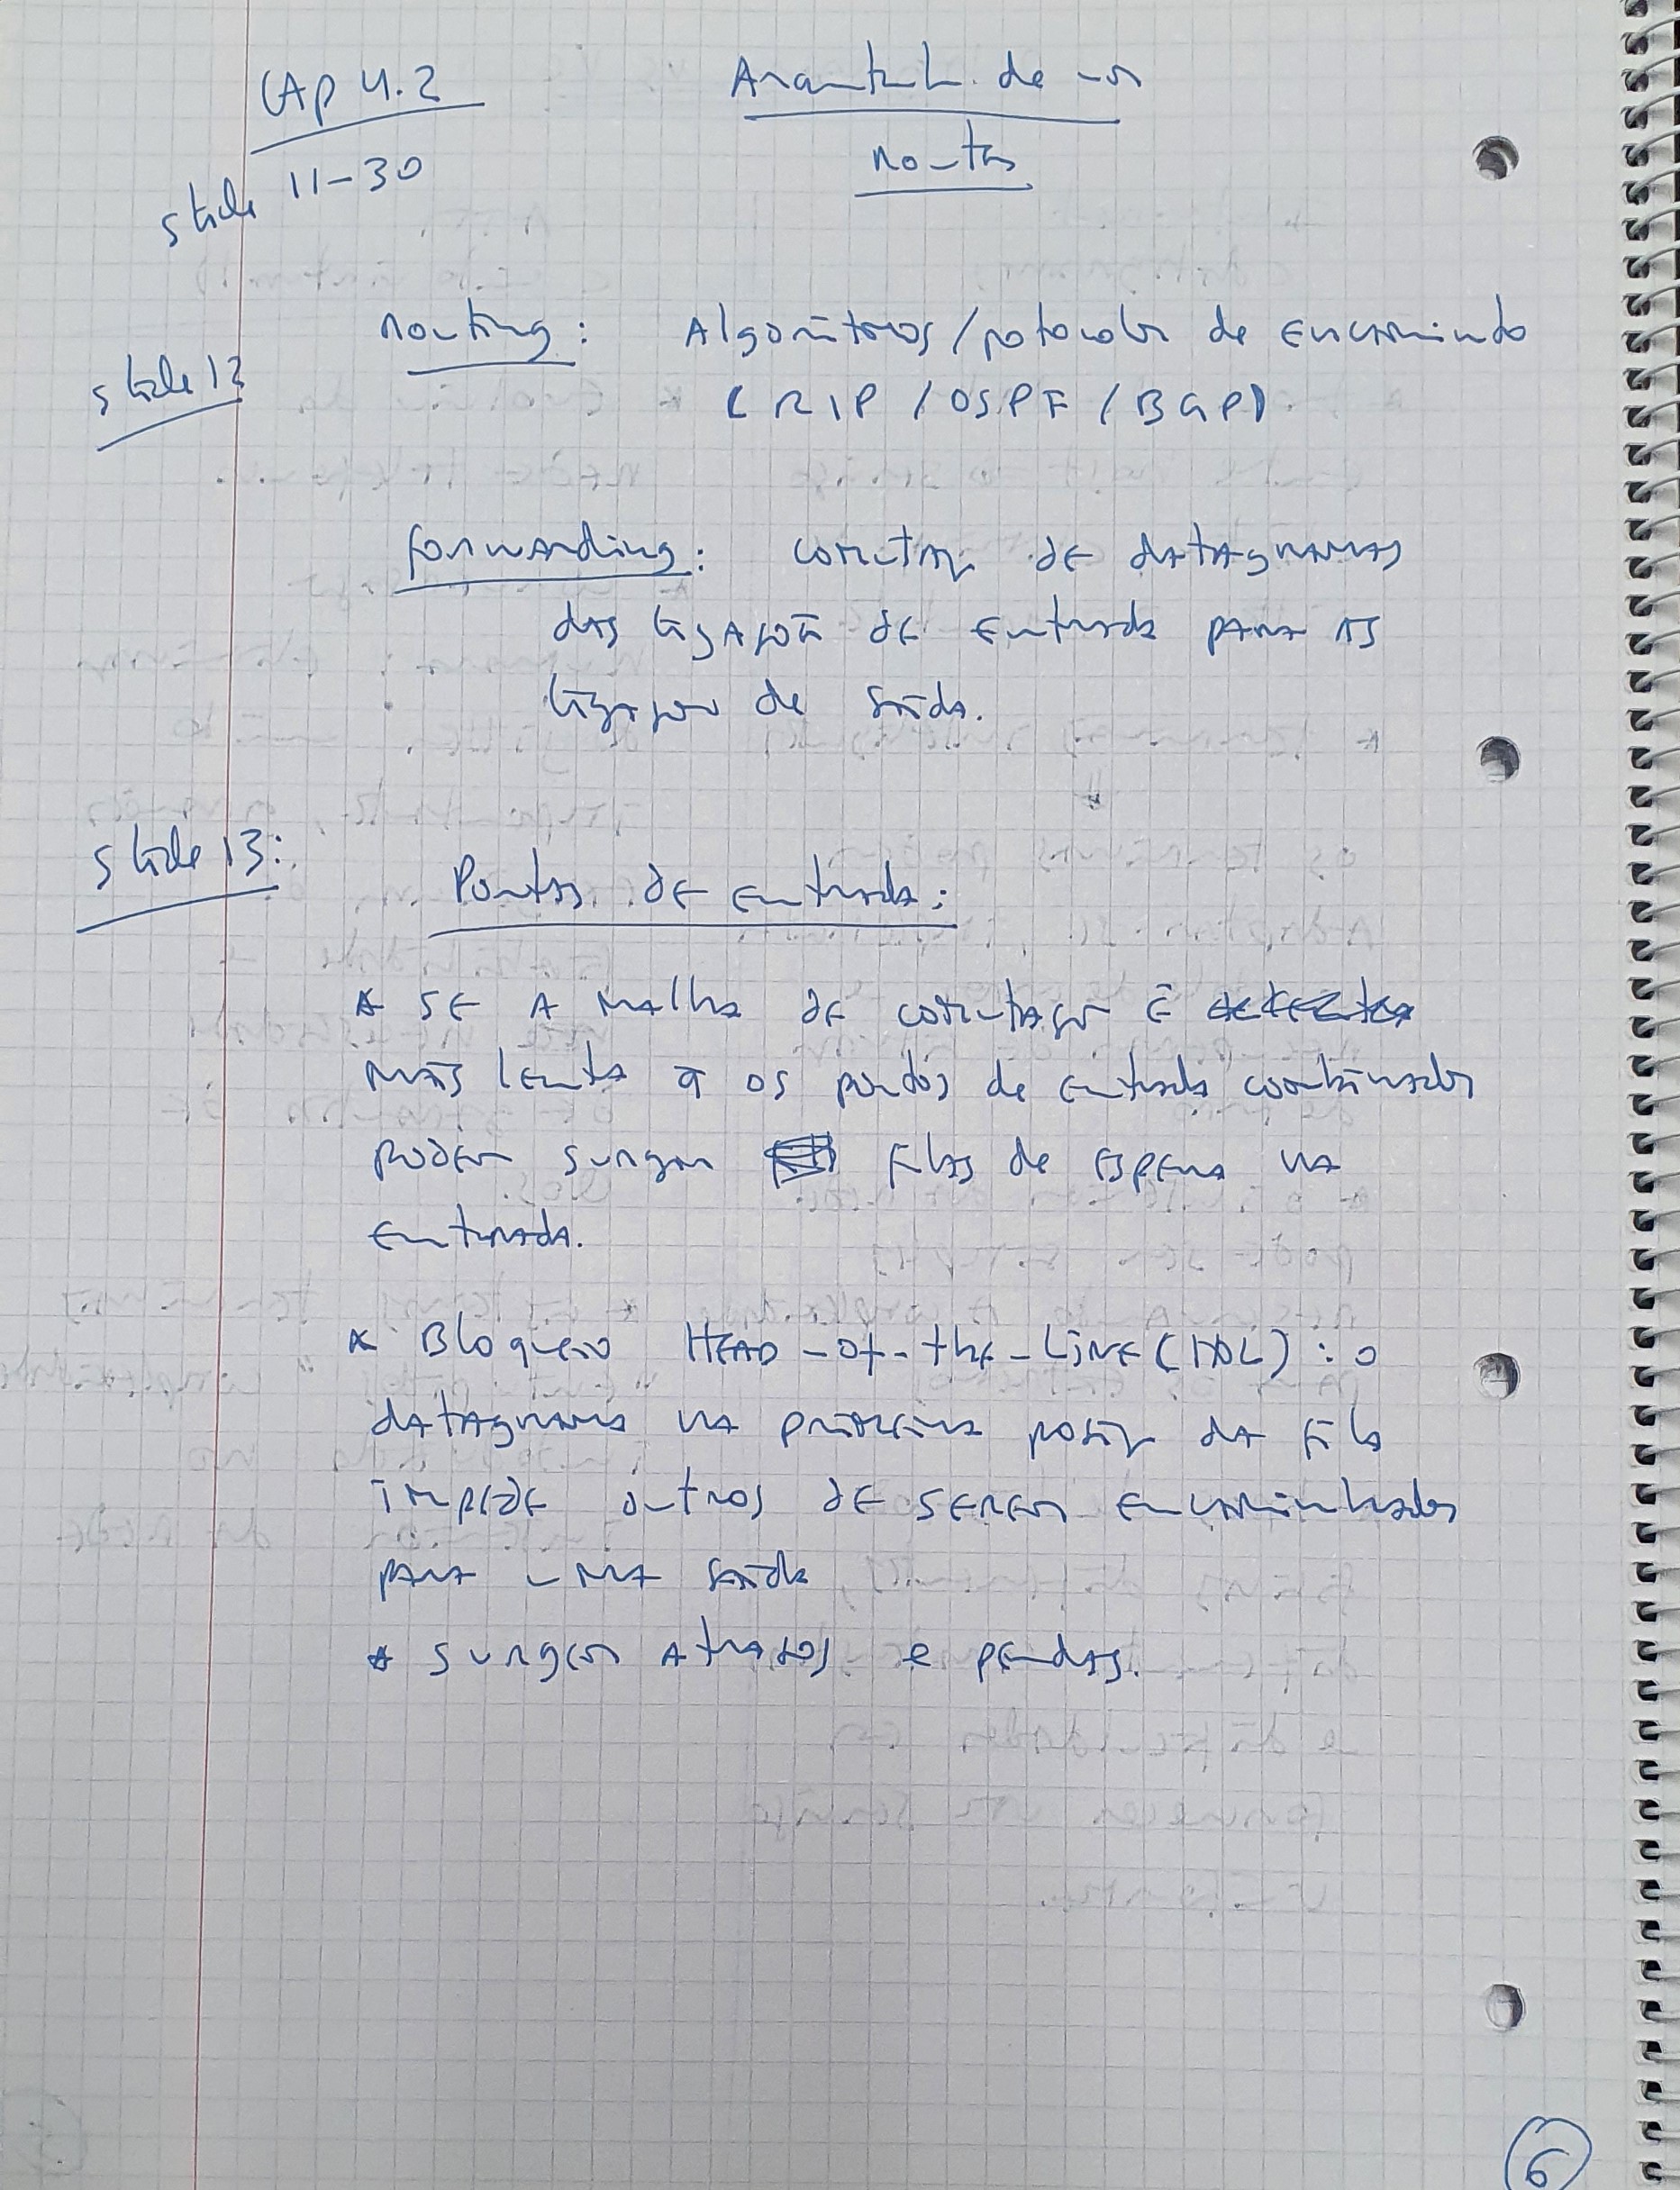 Cap 4.2
Arquitect. de um
router
slide 11-30
slide 12
routing: Algoritmos/protocolos de encaminhamento
(RIP/OSPF/BGP)
forwarding: comutação de datagramas
das ligações de entrada para as
ligações de saída.
slide 13:
Portas de entrada:
* se a malha de comutação é
mais lenta q os portos de entrada combinados
podem surgir filas de espera na
entrada.
* Bloqueio Head-of-the-Line (HOL): o
datagrama na primeira posição da fila
impede outros de serem encaminhados
para uma saída
* surgem atrasos e perdas.
6